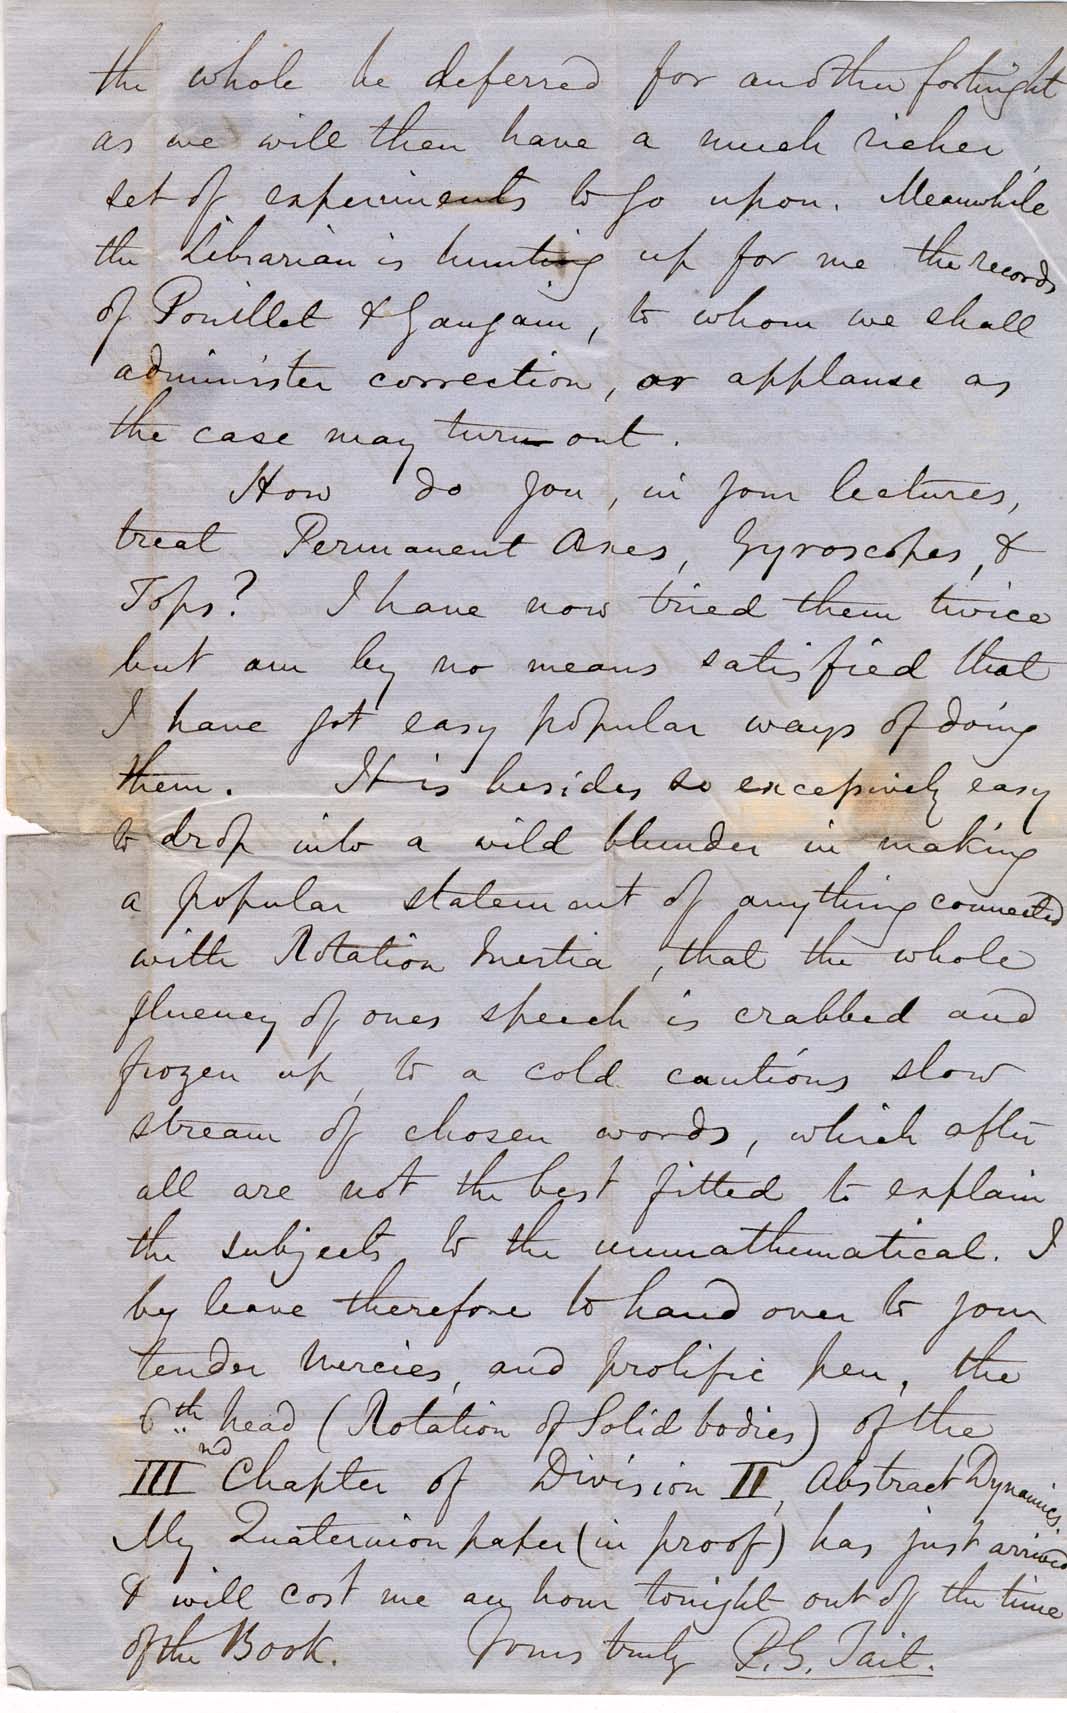 the whole be deferred for another fortnight
as we will then have a much richer
set of experiments to go upon. Meanwhile
the Librarian is hunting up for me the records
of Pouillet & Gaugain, to whom we shall
administer correction, or applause as
the case may turn out.
How do you, in your lectures,
treat Permanent Axes, Gyroscopes, &
Tops? I have now tried them twice
but am by no means satisfied that
I have got easy popular ways of doing
them. It is besides so excessively easy
to drop into a wild blunder in making
a popular statement of anything connected
with Rotation Inertia, that the whole
fluency of ones speech is crabbed and
frozen up, to a cold cautious slow
stream of chosen words, which after
all are not the best fitted to explain
the subjects to the unmathematical. I
beg leave therefore to hand over to your
tender mercies, and prolific pen, the
6th head (Rotation of Solid bodies) of the
IIInd Chapter of Division II, Abstract Dynamics.
My Quaternion paper (in proof) has just arrived
& will cost me an hour tonight out of the time
of the Book. Yours truly P.G. Tait.